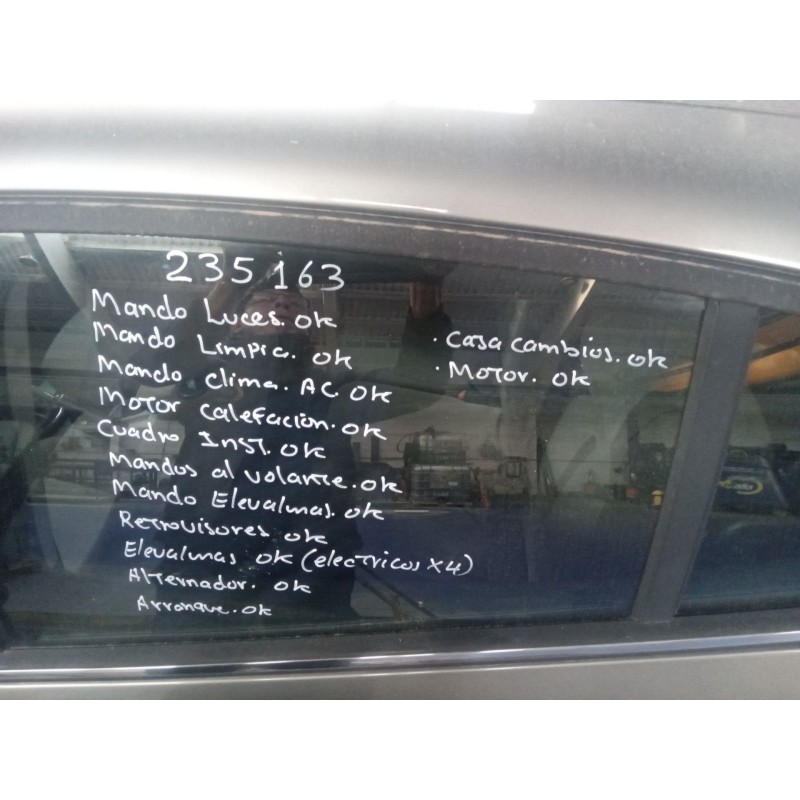 235163
Mando Luces. ok
Mando Limpia. ok
Mando clima. AC. ok
Motor calefacion. ok
Cuadro Inst. ok
Mandos al volante. ok
Mando Elevalunas. ok
Retrovisores ok
Elevalunas ok (electricos x4)
Alternador. ok
Arranque. ok
· Casa cambios. ok
· Motor. ok